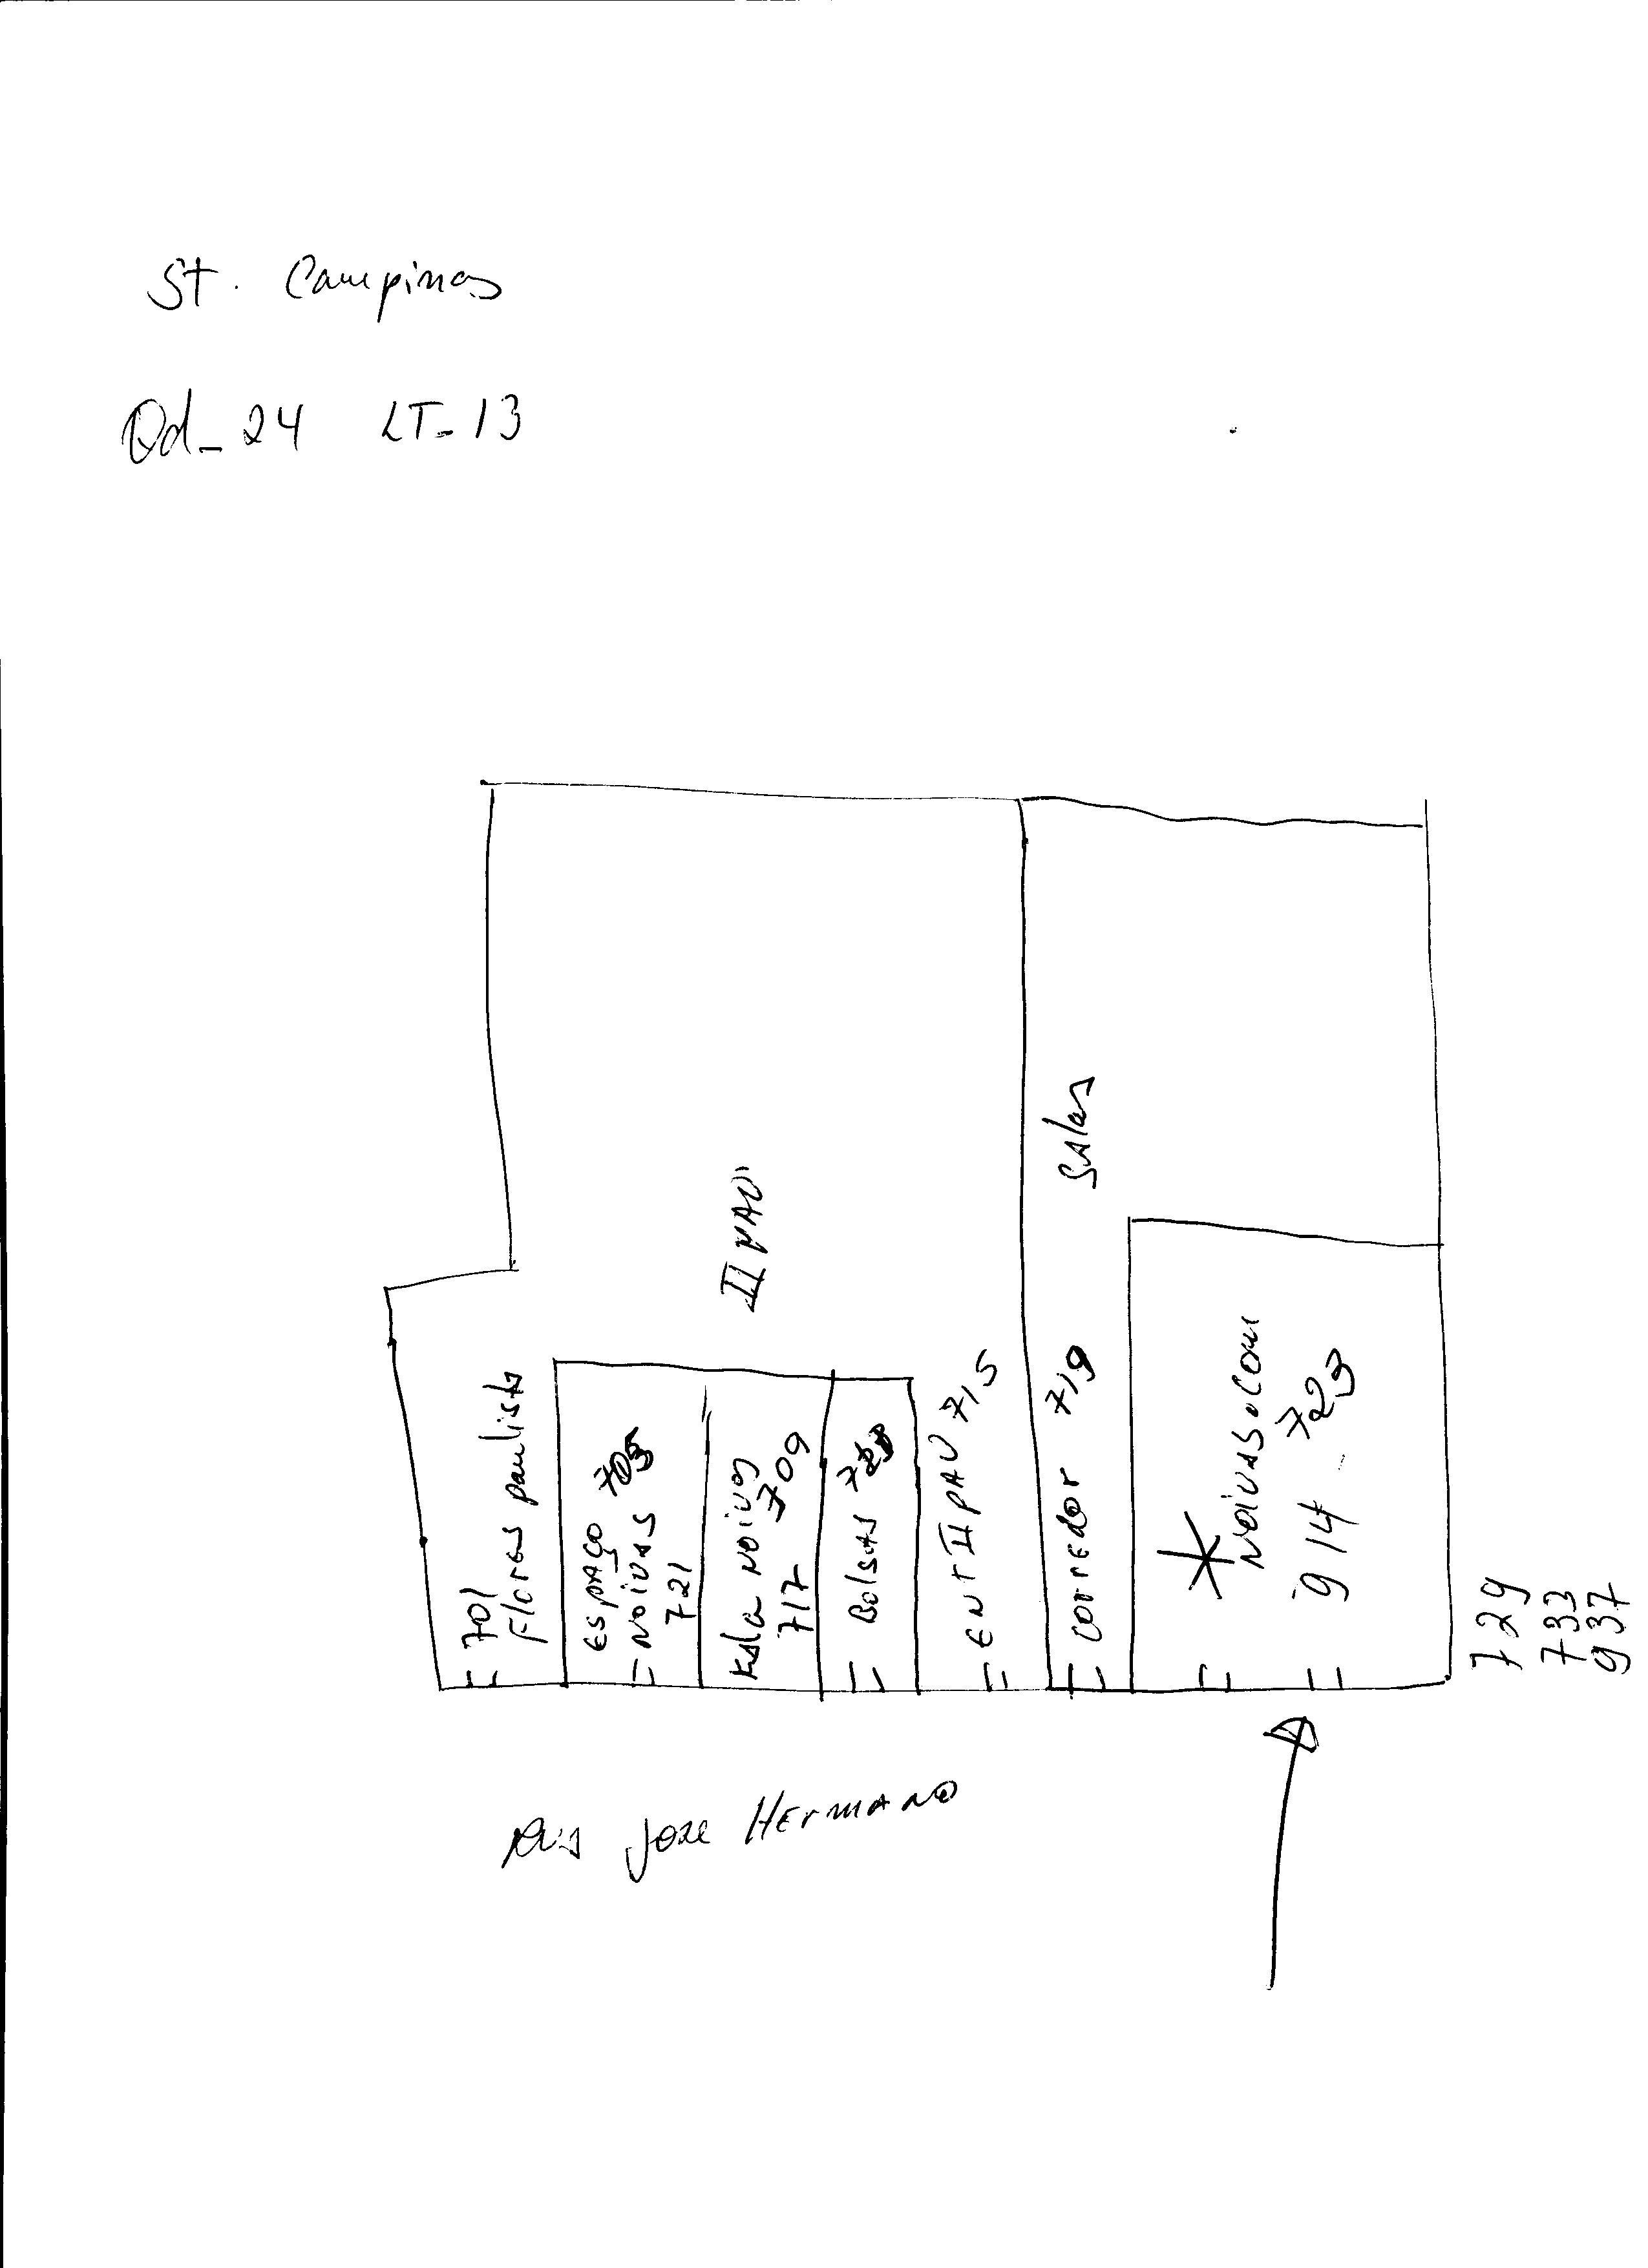 St. Campinas
Qd_24 LT_13
701
Flores paulista
ESPAÇO 705
NOIVAS
721
Ksla NOIVOS
717 709
Bolsas
II PAV
ENT II PAV 715
corredor 719
SALAS
NOIVAS.COM
914 - 723
729
733
937
Rua Jose HErmANO